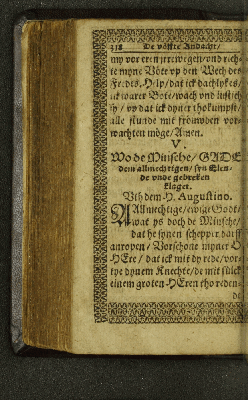 318 De vöffte Andacht/
my vor eren jrrewegen/ vnd rich-
te myne Vöte vp den Wech des
Fredes. Help/ dat ick dachlykes/
ick warer Bote/ wach vnd
sy/ vp dat ick dyner thokumpst/
alle stunde mit fröuwden vor-
wachten möge/ Amen.
V.
Wo de Minsche/ GADE
dem allmechtigen/ syn Elen-
de vnde gebreken
klaget.
Vth dem H. Augustino.
Allmechtige/ ewige Godt/
wat ys doch de Minsche/
dat he synen schepper darff
anropen/ Vorschone myner O
HEre/ dat ick mit dy rede/ vor-
tye dynem Knechte/ de mit sülck
einem groten HEren tho reden-
de